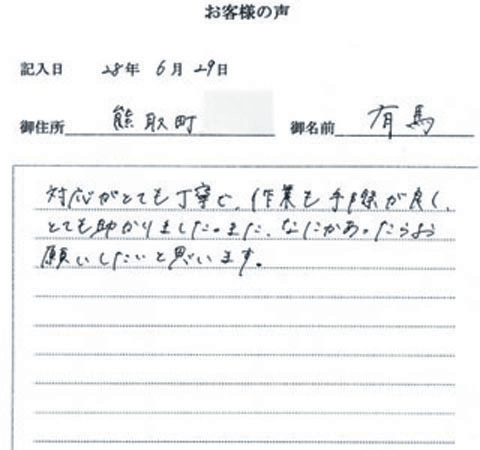 お客様の声
記入日 28年 6月 29日
御住所 熊取町 御名前 有馬
対応がとても丁寧で、作業も手際が良く、
とても助かりました。また、なにかあったらよう
願いしたいと思います。